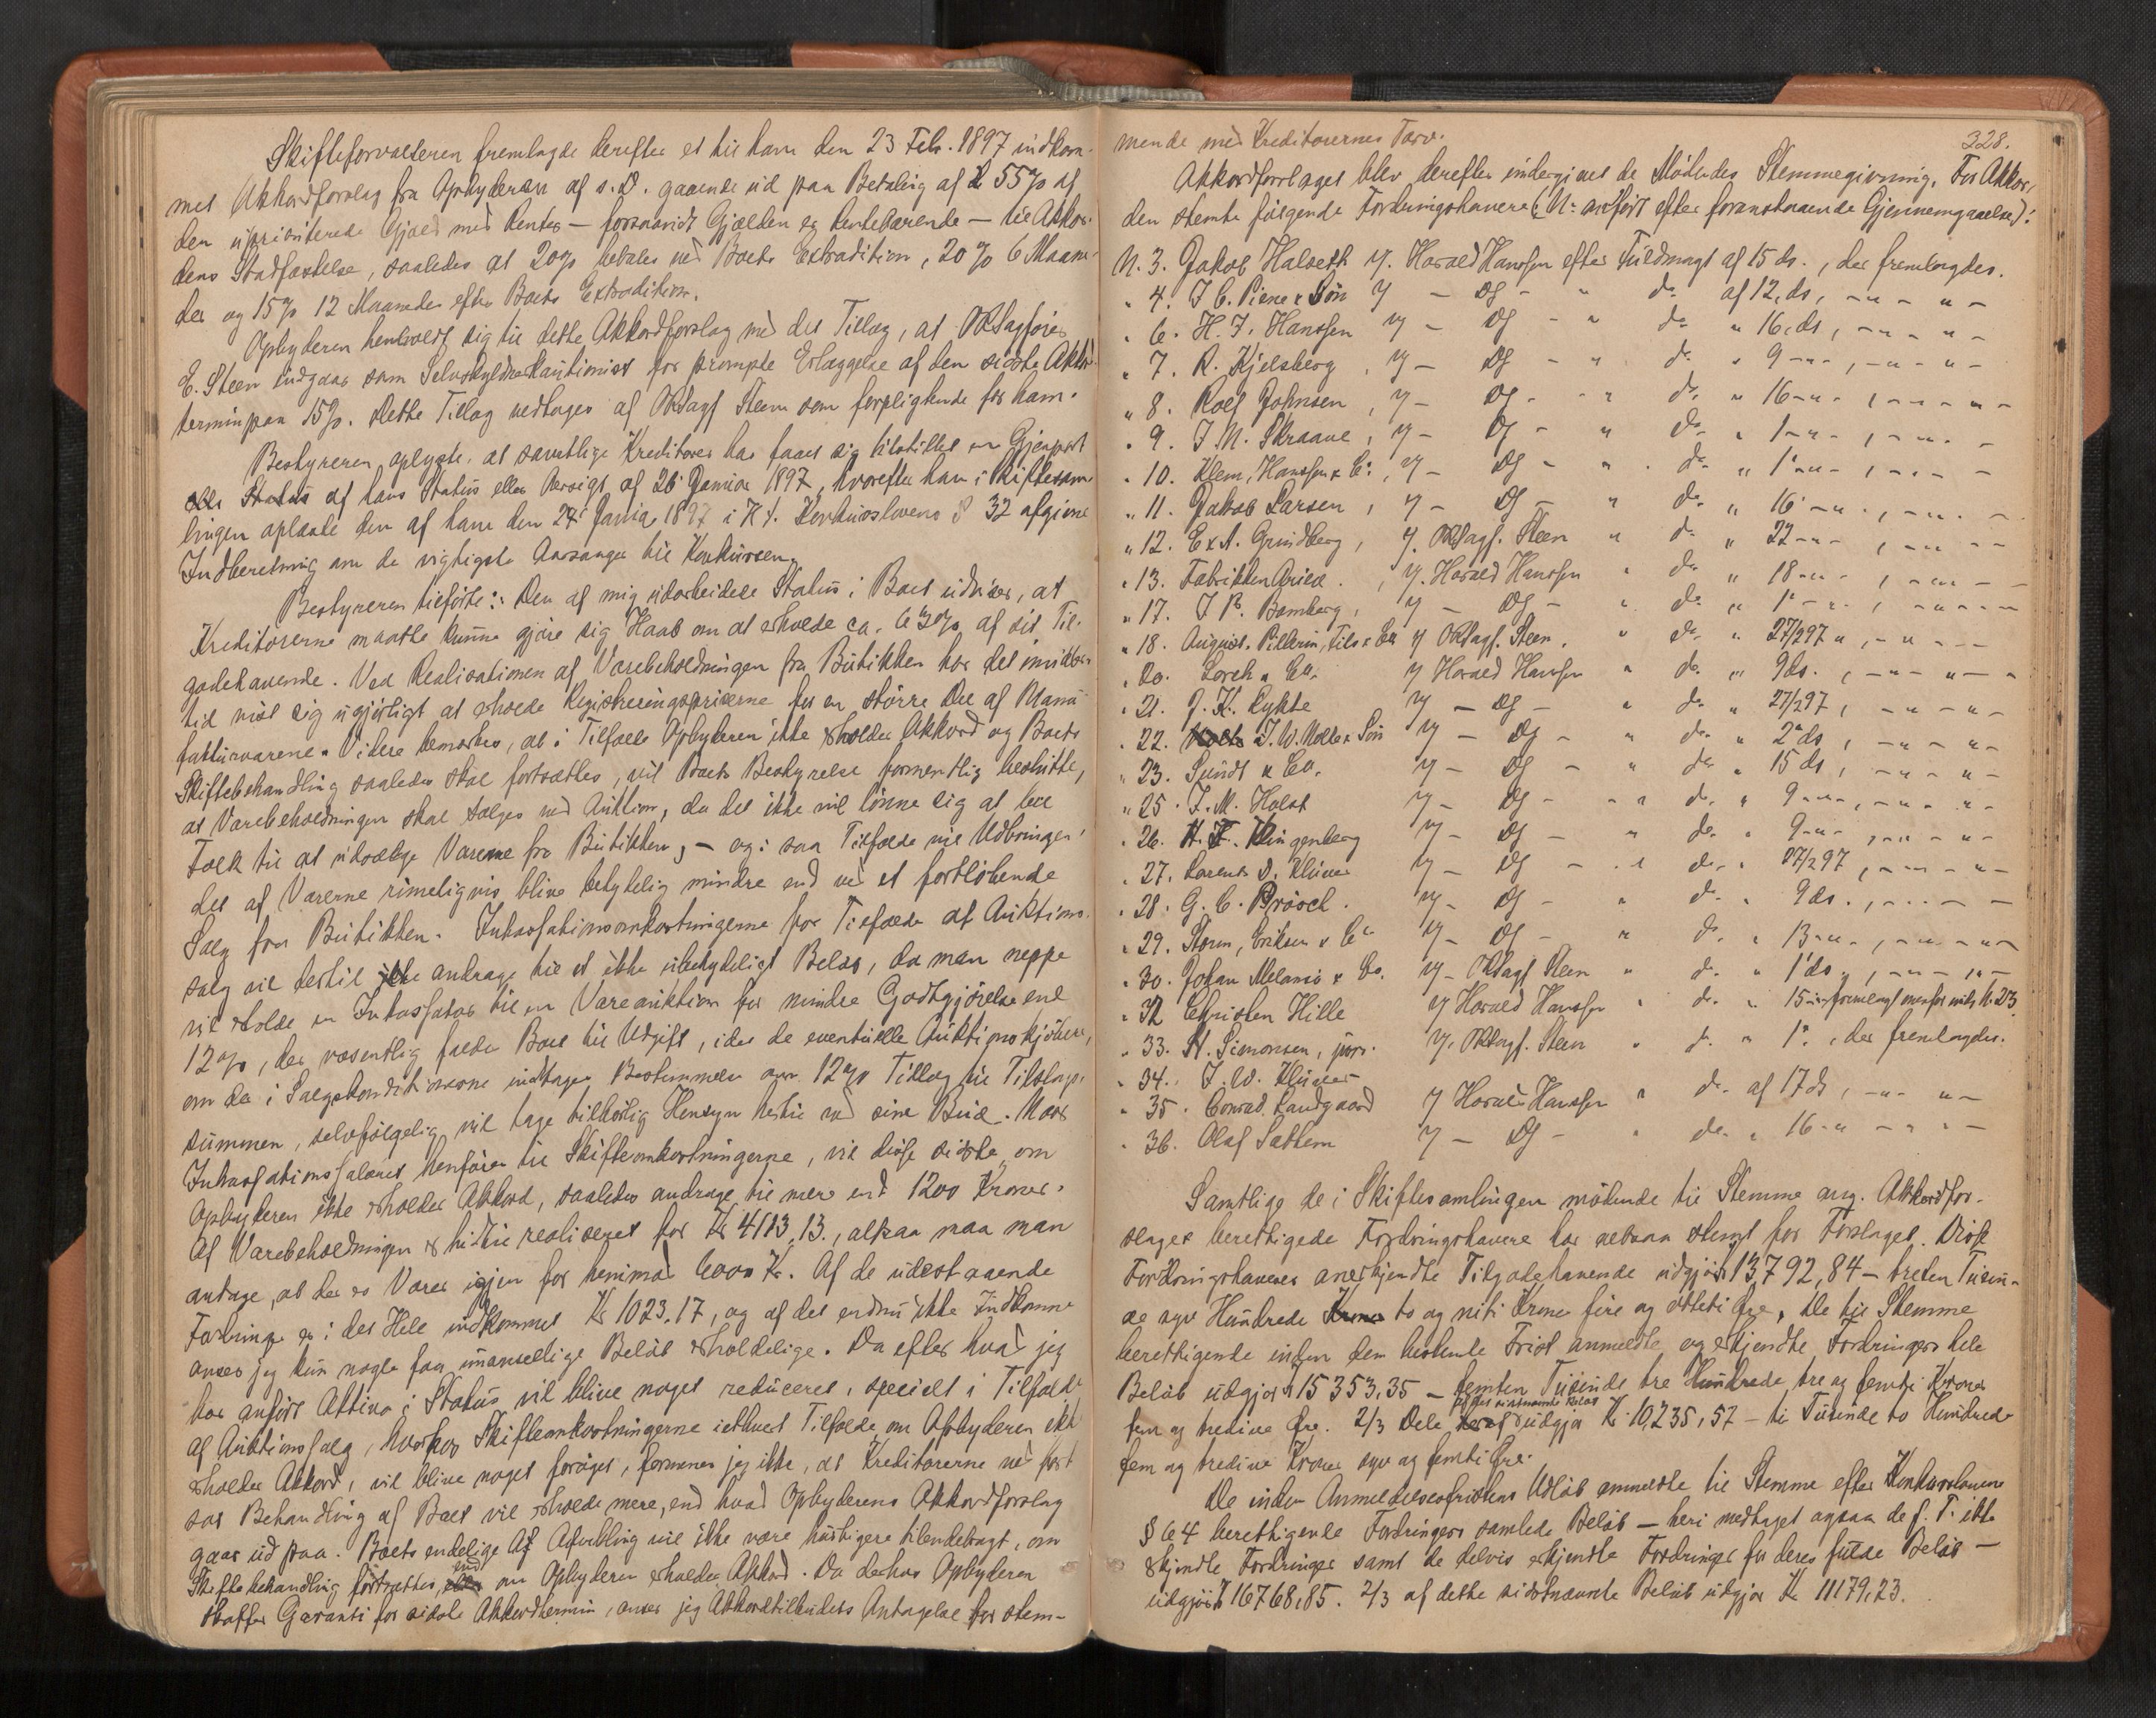 Skifteforvalteren fremlagde derefter et til ham den 23 Feb. 1897 indkom-
met Akkordforslag fra Opbyderen af s. D. gaaende ud paa Betaling af 55% af
den uprioriterede Gjæld med Renter — forsaavidt Gjælden er rentebærende — til Akkor-
dens Stadfæstelse, saaledes at 20% betales ved Boets Extradition, 20% 6 Maane-
der og 15% 12 Maaneder efter Boets Extradition.
Opbyderen henholdt sig til dette Akkordforslag med det Tillæg, at ORsagfører
E. Steen indgaar som Selvskyldnerkautionist for prompte Erlæggelse af den sidste Akkord-
termin paa 15%. Dette Tillæg vedtoges af ORsagf Steen som forpligtende for ham.
Bestyreren oplyste, at samtlige Kreditorer har faaet sig tilstillet en Gjenpart
af hans Status eller Oversigt af 26 Januar 1897, hvorefter han i Skiftesam-
lingen oplæste den af ham den 27 Januar 1897 i H. t. Konkurslovens § 32 afgivne
Indberetning om de vigtigste Aarsager til Konkursen.
Bestyreren tilførte: Den af mig udarbeidede Status i Boet udviser, at
Kreditorerne maatte kunne gjøre sig Haab om at erholde ca. 63% af sit Til-
godehavende. Ved Realisationen af Varebeholdningen fra Butikken har det imidler-
tid vist sig ugjørligt at erholde Registreringspriserne for en større Del af Manu-
fakturvarene. Videre bemærkes, at i Tilfælde Opbyderen ikke erholder Akkord og Boets
Skiftebehandling saaledes skal fortsættes, vil Boets Bestyrelse formentlig beslutte,
at Varebeholdningen skal sælges ved Auktion, da det ikke vil lønne sig at leie
Folk til at udsælge Varerne fra Butikken, — og i saa Tilfælde vil Udbringen-
det af Varerne rimeligvis blive betydelig mindre end ved et fortløbende
Salg fra Butikken. Inkassationsomkostningerne for Tilfælde af Auktions-
salg vil dertil andrage til et ikke ubetydeligt Beløb, da man neppe
vil erholde en Inkassator til en Vareauktion for mindre Godtgjørelse end
12%, der væsentlig falder Boet til Udgift, idet de eventuelle Auktionskjøbere,
om der i Salgskonditionerne indtages Bestemmelse om 12% Tillæg til Tilslags-
summen, selvfølgelig vil tage tilbørlig Hensyn hertil ved sine Bud. Naar
Inkassationssalæret henføres til Skifteomkostningerne, vil disse sidste, om
Opbyderen ikke erholder Akkord, saaledes andrage til mere end 1200 Kroner.
Af Varebeholdningen er hidtil realiseret for Kr 4113,13., altsaa maa man
antage, at der er Varer igjen for henimod 6000 Kr. Af de udestaaende
Fordringer er i det Hele indkommet Kr 1023,17, og af det endnu ikke Indkomne
anser jeg kun nogle faa uanseelige Beløb erholdelige. Da efter hvad jeg
har anført Aktiva i Status vil blive noget reduceret, specielt i Tilfælde
af Auktionssalg, hvorhos Skifteomkostningerne i ethvert Tilfælde, om Opbyderen ikke
erholder Akkord, vil blive noget forøget, formener jeg ikke, at Kreditorerne ved fort-
sat Behandling af Boet vil erholde mere, end hvad Opbyderens Akkordforslag
gaar ud paa. Boets endelige Afvikling vil ikke være hurtigere tilendebragt, om
Skiftebehandling fortsættes, end om Opbyderen erholder Akkord. Da derhos Opbyderen
skaffer Garanti for sidste Akkordtermin, anser jeg Akkordtilbudets Antagelse for stem-
328.
mende med Kreditorernes Tarv.
Akkordforslaget blev derefter undergivet de Mødendes Stemmegivning. For Akkor-
den stemte følgende Fordringshavere (: No anført efter foranstaaende Gjennemgaaelse):
N. 3. Jakob Halseth v. Harald Hanssen efter Fuldmagt af 15 ds., der fremlagdes.
" 4. J C. Piene & Søn v — Do — " do af 12. ds, — " — " —
" 6. H. J. Hanssen v — Do — " do " 16. ds, — " — " —
" 7. R. Kjelsberg, v — Do — " do " 9 — " —, — " — " —
" 8. Rolf Johnsen, v — Do — " do " 16 — " —, — " — " —
" 9. J M. Skraave, v — Do — " do " 1 — " —, — " — " —
" 10. Klem, Hanssen & Co, v — Do — " do " 1 — " —, — " — " —
" 11. Jakob Larsen, v — Do — " do " 16 — " —, — " — " —
" 12. E & A. Grundberg, v. ORsagf. Steen " do " 22 — " —, — " — " —
" 13. Fabrikken Arild., v. Harald Hanssen " do " 18 — " —, — " — " —
" 17. J R. Bamberg, v — Do — " do " 1 — " —, — " — " —
" 18. August. Pellerin, Fils & Co v ORsagf. Steen, " do " 27/2 97 ", — " — " —
" 20. Lorck & Co. v Harald Hanssen " do " 9 ds., — " — " —
" 21. J. K. Lykke v — Do — " do " 27/2 97, — " — " —
" 22. J. W. Molle & Søn v — Do — " do " 2 ds, — " — " —
" 23. Sundt & Co. v — Do — " do " 15 ds, — " — " —
" 25. J. M. Holst v — Do — " do " 9 — " —, — " — " —
" 26. Klingenberg v — Do — " do " 9 — " —, — " — " —
" 27. Lorents D. Klüver v — Do — " do " 27/2 97, — " — " —
" 28. G. C. Brøsch. v — Do — " do " 9 ds., — " — " —
" 29. Storm, Eriksen & Co v — Do — " do " 13 — " —, — " — " —
" 30. Johan Melansø & Co. v — ORsagf Steen " do " 1 ds, — " — " —
" 32 Christen Hille v Harald Hanssen " do " 15 — " — fremlagt ovenfor under N. 23.
" 33. St. Simonsen, jun. v. ORsagf. Steen " do " 1., der fremlagdes.
" 34. J. W. Klüver
" 35. Conrad Landgaard v Harald Hanssen " do af 17 ds, — " — " —
" 36. Olaf Sathern v — Do — " do " 16 — " — " —
Samtlige de i Skiftesamlingen mødende til Stemme ang. Akkordfor-
slaget berettigede Fordringshavere har altsaa stemt for Forslaget. Disse
Fordringshaveres anerkjendte Tilgodehavende udgjør Kr 13,792,84 — tretten Tusin-
de syv Hundrede to og niti Kroner fire og otteti Øre, De til Stemme
berettigende inden den bestemte Frist anmeldte og erkjendte Fordringers hele
Beløb udgjør Kr 15353,35 — femten Tusinde tre Hundrede tre og femti Kroner
fem og tredive Øre. 2/3 Dele af det sidstnævnte Beløb udgjør Kr. 10,235,57 — ti Tusinde to Hundrede
fem og tredive Kroner syv og femti Øre.
De inden Anmeldelsesfristens Udløb anmeldte til Stemme efter Konkurslovens
§ 64 berettigende Fordringers samlede Beløb — heri medtaget ogsaa de p. T. ikke
erkjendte Fordringer samt de delvis erkjendte Fordringer for deres fulde Beløb —
udgjør Kr 16768,85. 2/3 af dette sidstnævnte Beløb udgjør Kr 11179,23.